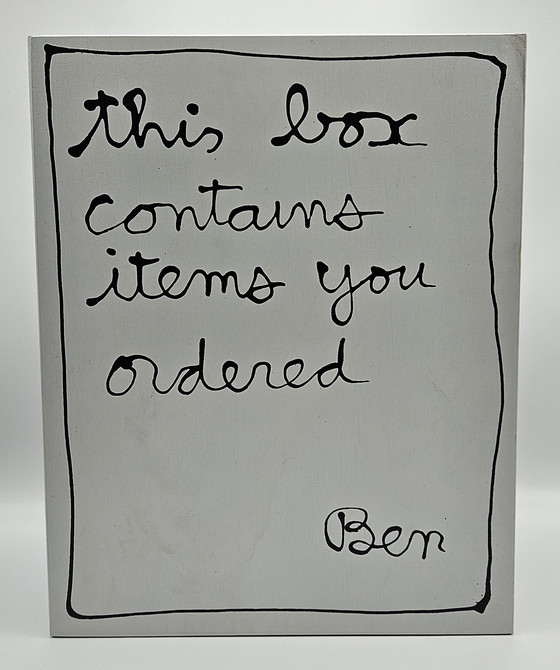 this box
contains
items you
ordered
Ben